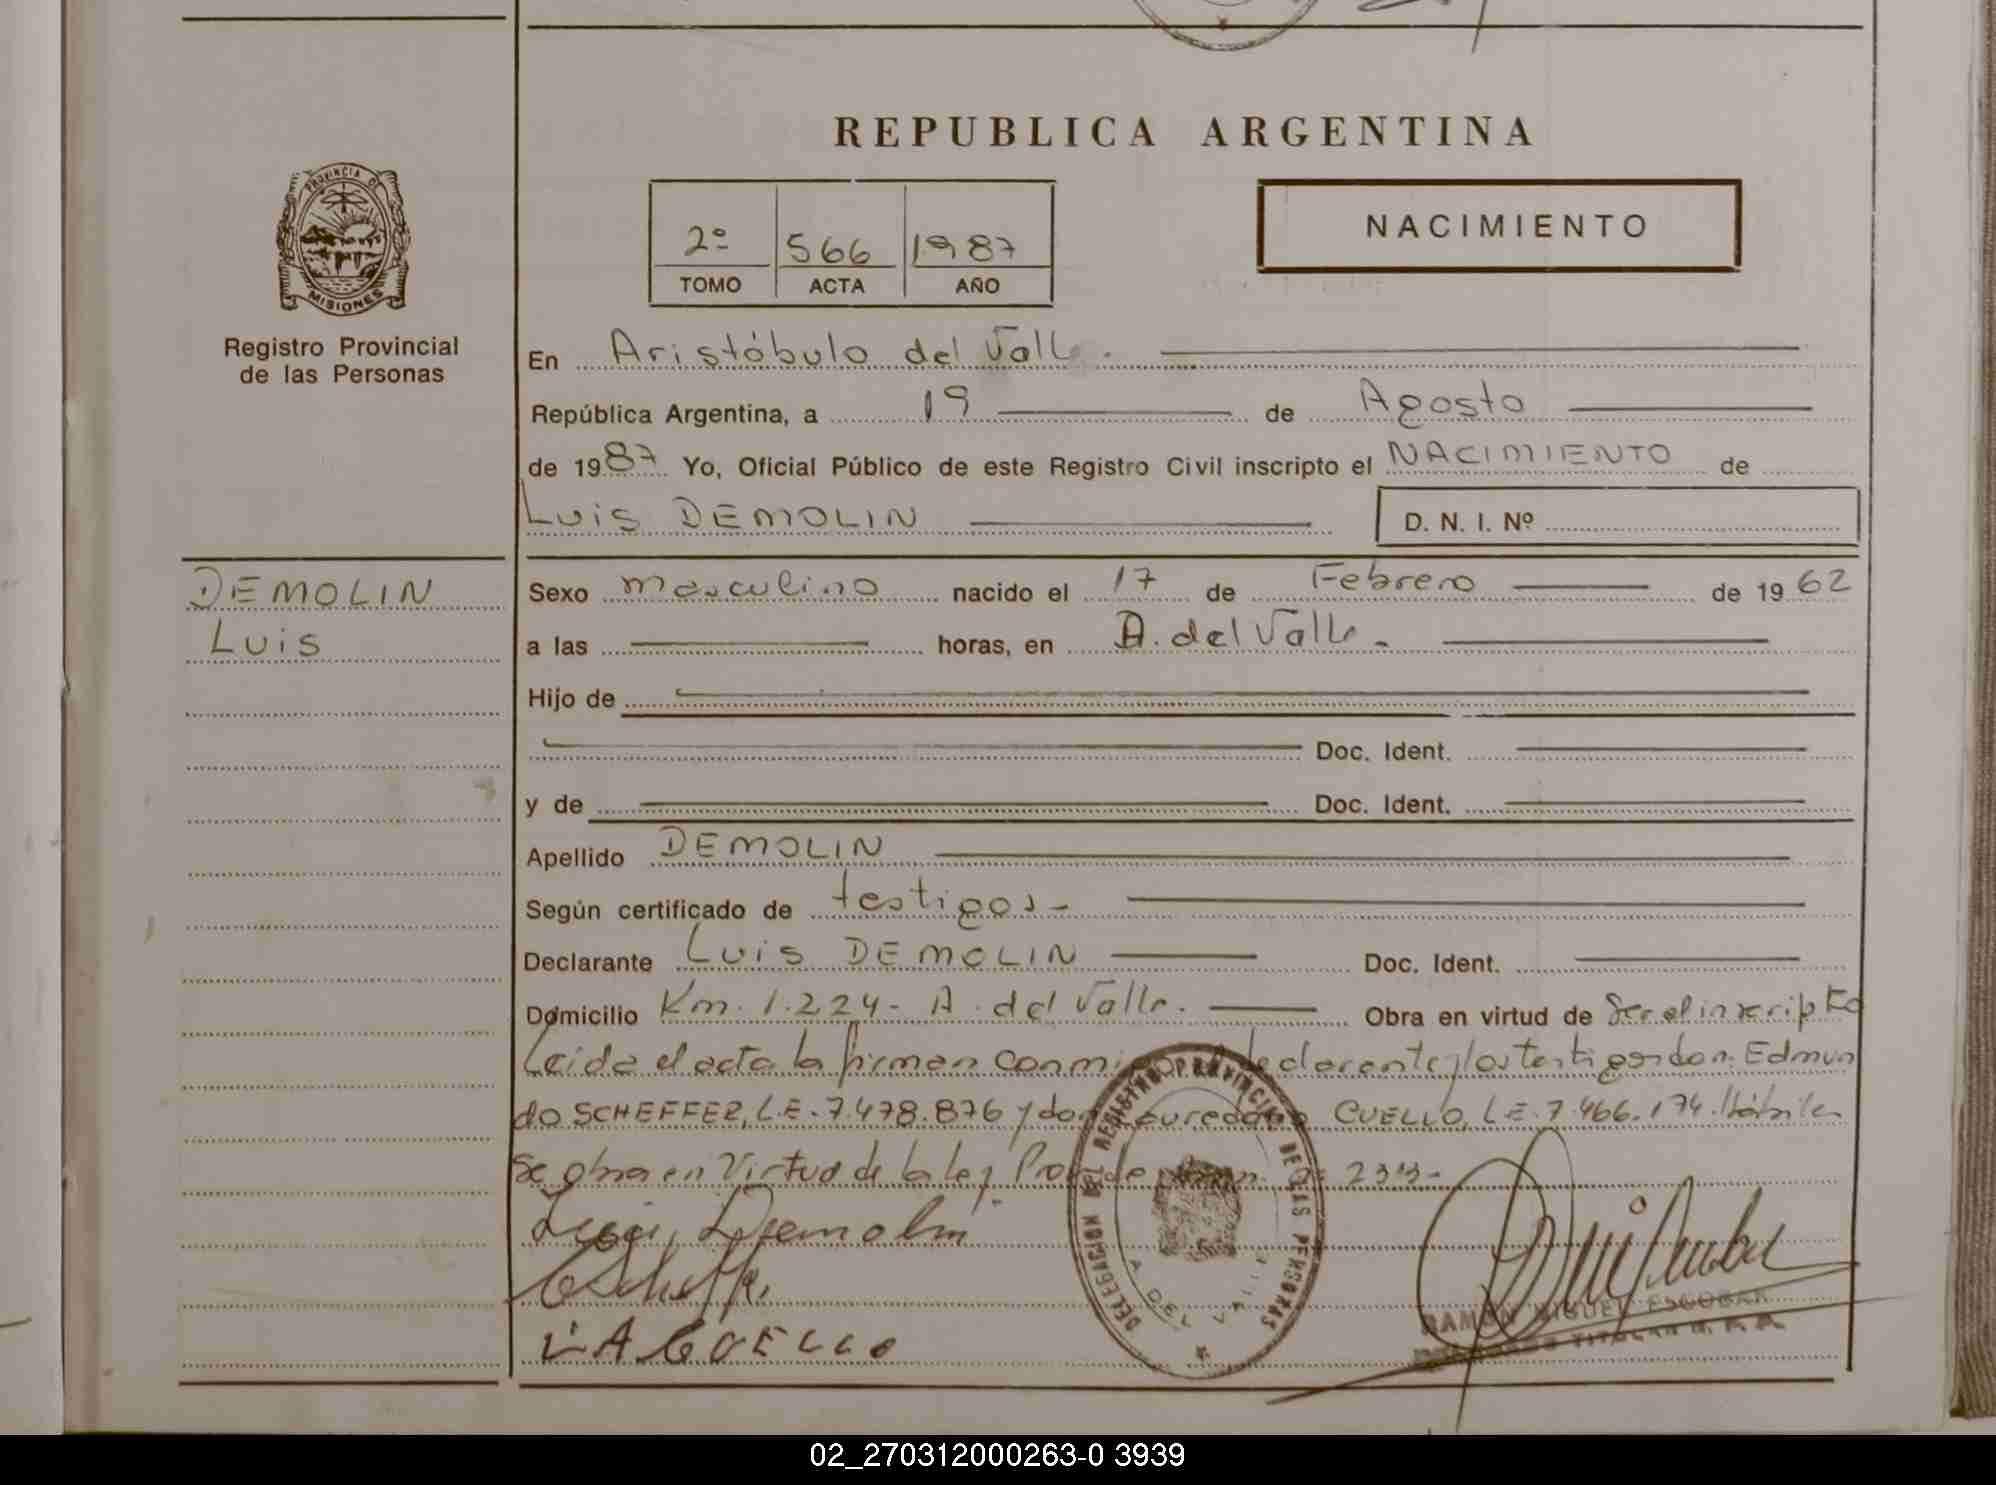 REPUBLICA ARGENTINA
PROVINCIA DE
MISIONES
Registro Provincial
de las Personas
2º 566 1987
TOMO ACTA AÑO
NACIMIENTO
En Aristóbulo del Valle.
República Argentina, a 19 de Agosto
de 1987 Yo, Oficial Público de este Registro Civil inscripto el NACIMIENTO de
Luis DEMOLIN D. N. I. Nº
DEMOLIN
Luis
Sexo masculino nacido el 17 de Febrero de 1962
a las horas, en A. del Valle.
Hijo de
Doc. Ident.
y de Doc. Ident.
Apellido DEMOLIN
Según certificado de testigos-
Declarante Luis DEMOLIN Doc. Ident.
Domicilio Km. 1.224- A. del Valle. Obra en virtud de ser el inscripto
Leida el acta la firman conmigo declarante y los testigos don: Edmun
do SCHEFFER, L.E. 7.478.876 y don CUELLO, L.E. 7.466.174. Hábiles
Se obra en Virtud de la ley 233-
Luis Demolin
EScheffer
L A CUELLO
DELEGACION DEL REGISTRO PROVINCIAL DE LAS PERSONAS
A. DEL VALLE
RAMON MIGUEL ESCOBAR
TITULAR R. P. P.
02_270312000263-0 3939